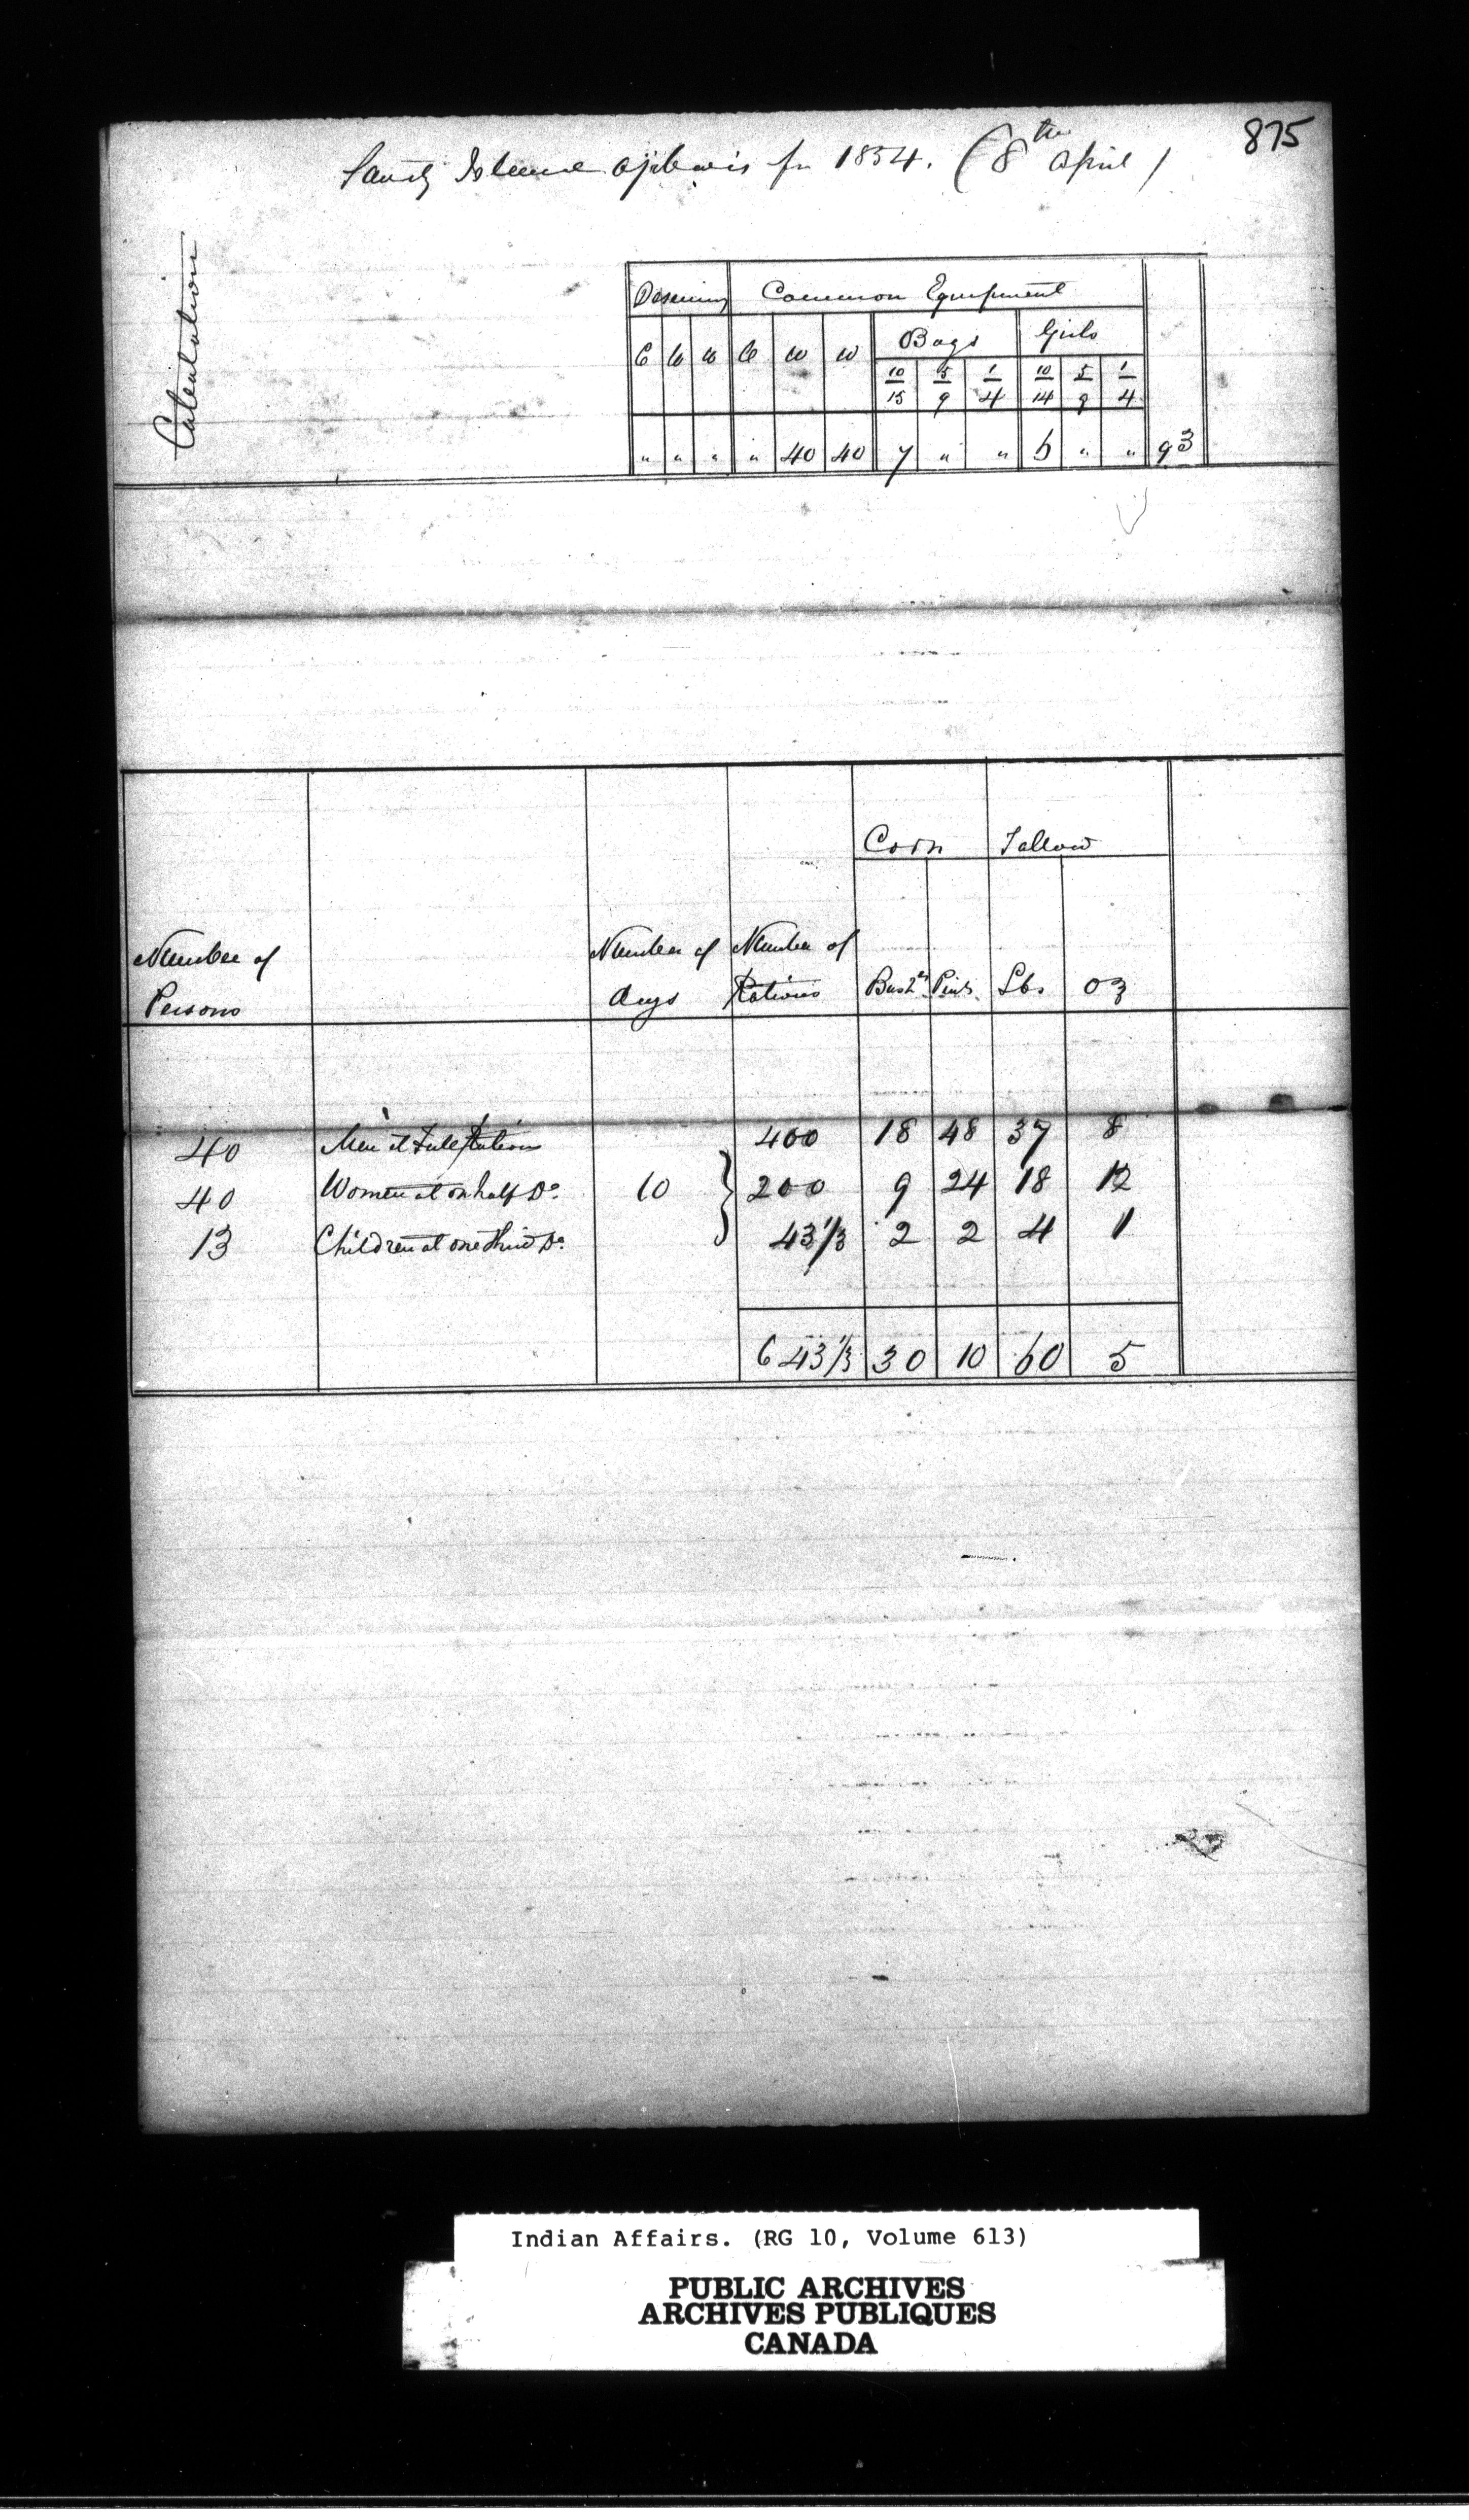 875
Sandy Island Ojibewis for 1854. (8th April)
Calculation
Deserving Common Equipment
C W W C W W Boys Girls
10/15 5/9 1/4 10/14 5/9 1/4
" " " " 40 40 7 " " 6 " " 93
Corn Tallow
Number of Persons Number of days Number of Rations Bush.ls Pints Lbs oz
40 Men at Full Rations 400 18 48 37 8
40 Women at on half Do. 10 } 200 9 24 18 12
13 Children at one third Do. 43 1/3 2 2 4 1
643 1/3 30 10 60 5
Indian Affairs. (RG 10, Volume 613)
PUBLIC ARCHIVES
ARCHIVES PUBLIQUES
CANADA